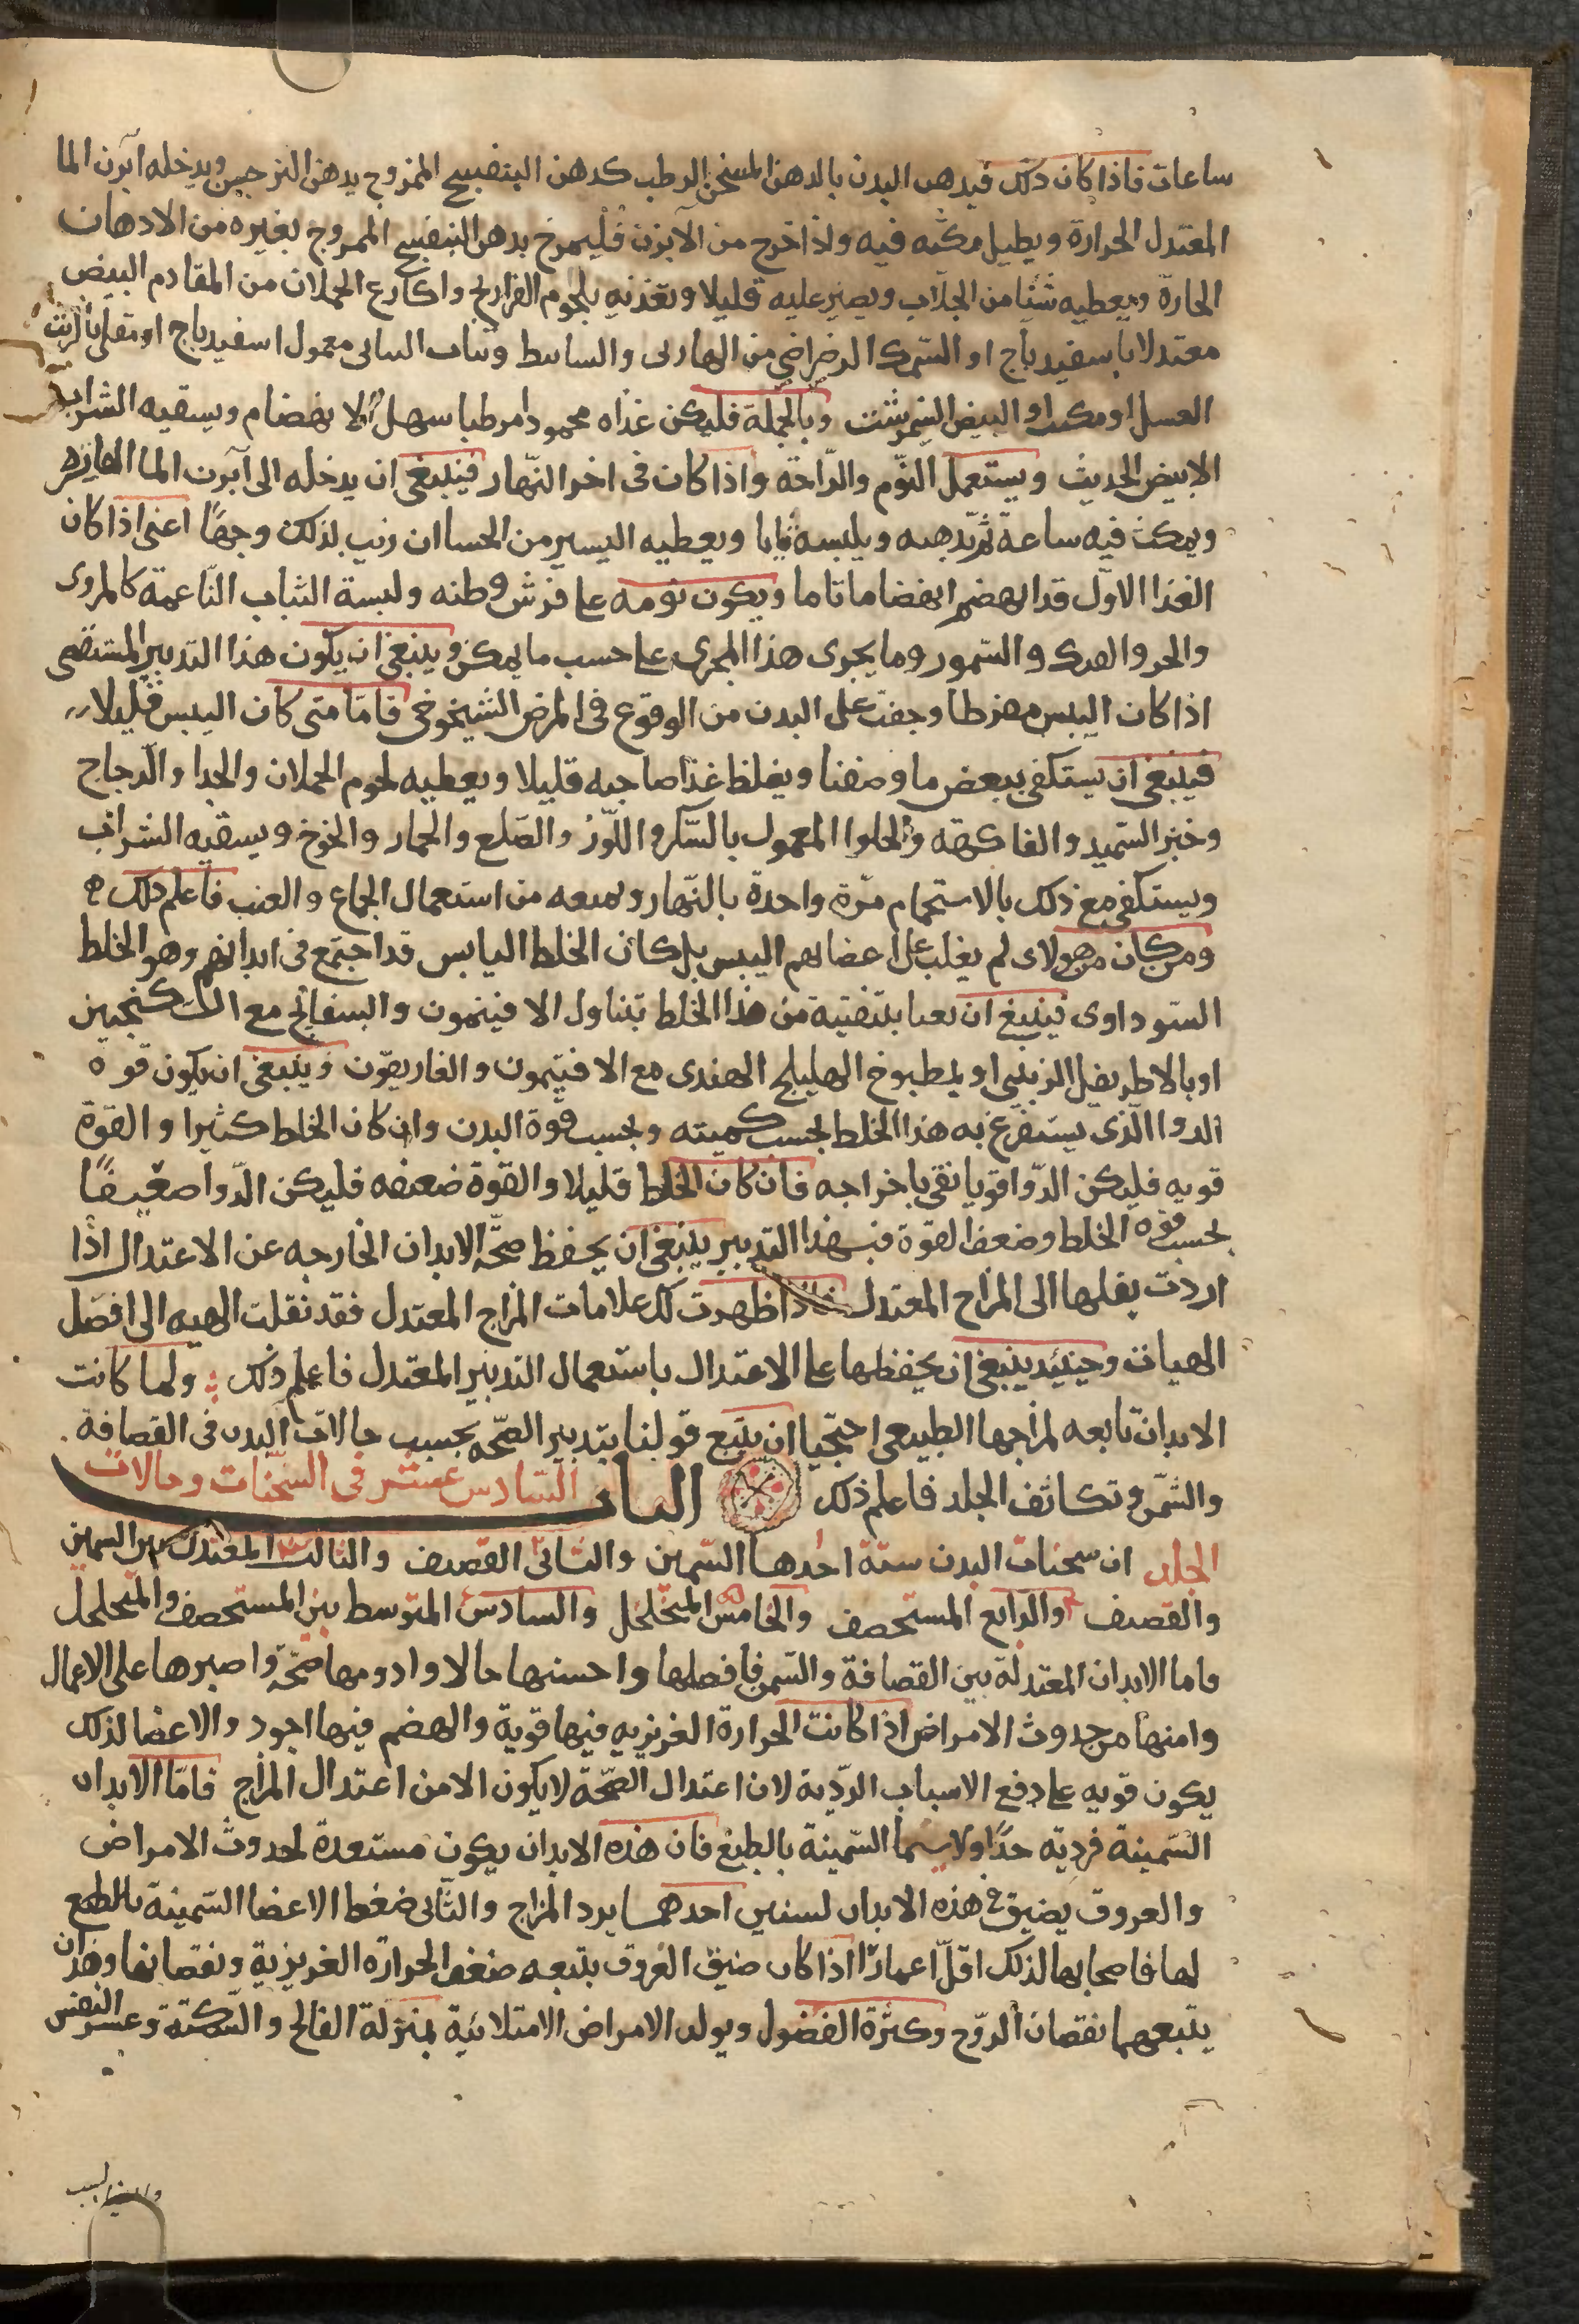 ساعات فاذا كان ذلك فيدهن البدن بالدهن المسخن الرطب كدهن البنفسج الممزوج بدهن النرجس ويدخله آبزن الما
المعتدل الحرارة ويطيل مكثه فيه واذا خرج من الآبزن فليمرخ بدهن البنفسج الممزوج بغيره من الادهان
الحارة ويعطيه شئا من الجلاب ويصبر عليه قليلا وتغذيه بلحوم الفراريج واكارع الحملان من المقادم البيض
معتدلا باسفيدباج او السمك الرضراضي من الهازلى و معمول اسفيدباج او تقلى بالزيت
العسل او البيض النيمرشت وبالجملة فليكن غذاه محمودا مرطبا سهل الانهضام ويسقيه الشراب
الابيض الحديث ويستعمل النوم والراحة واذا كان فى اخر النهار فينبغى ان يدخله الى آبزن الما
ويمكث فيه ساعة ثم يدهنه ويلبسه ثيابا ويعطيه اليسير من الحسا ان رتب لذلك وجها اعنى اذا كان
الغذا الاول قد انهضم انهضاما تاما ويكون نومه على فرش وطنه ولبسة الثياب الناعمة كالمروى
والخز والفنك والسمور وما يجرى هذا المجرى على حسب ما يمكن وينبغى ان يكون هذا التدبير المستقصى
اذا كان اليبس مفرطا وخفت على البدن من الوقوع فى المرض الشيخوخى فاما متى كان اليبس قليلا
فينبغى ان يستكفى ببعض ما وصفنا ويغلظ غذا صاحبه قليلا ويعطيه لحوم الحملان والجدا والدجاج
وخبز السميد والفاكهة والحلوا المعمول بالسكر واللوز والطلع والجمار والخوخ ويسقيه الشراب
ويستكفى مع ذلك بالاستحمام مرة واحدة بالنهار ويمنعه من استعمال الجماع والتعب فاعلم ذلك
ومن كان من هولاى لم يغلب على اعضايهم اليبس بل كان الخلط اليابس قد اجتمع فى ابدانهم وهو الخلط
السوداوى فينبغى ان تعنا بتنقية من هذا الخلط بتناول الافيتمون والبسفايج مع السكنجبين
او بالاطريفل الزبيبى او بمطبوخ الهليلج الهندى مع الافيتمون والغاريقون وينبغى ان يكون قوة
الدوا الذى يستفرغ به هذا الخلط بحسب كميته وبحسب قوة البدن وان كان الخلط كثيرا والقوة
قويه فليكن الدوا قويا نقى باخراجه فان كان الخلط قليلا والقوة ضعيفه فليكن الدوا ضعيفا
بحسب قوة الخلط وضعف القوة فبهذا التدبير ينبغى ان يحفظ صحة الابدان الخارجه عن الاعتدال اذا
اردت نقلها الى المزاج المعتدل فاذا ظهرت لك علامات المزاج المعتدل فقد نقلت الهيه الى افضل
الهيات وحينيذ ينبغى ان يحفظها على الاعتدال باستعمال التدبير المعتدل فاعلم ذلك ولما كانت
الابدان تابعه لمزاجها الطبيعى احتجنا ان نتبع قولنا بتدبير الصحة بحسب حالات البدن فى القصافة
والسمن وتكاثف الجلد فاعلم ذلك الباب السادس عشر فى السحنات وحالات
الجلد ان سحنات البدن ستة احدها السمين والثانى القصيف والثالث المعتدل بين السمين
والقصيف والرابع المستحصف والخامس المتخلخل والسادس المتوسط بين المستحصف والمتخلخل
فاما الابدان المعتدلة بين القصافة والسمن فافضلها واحسنها حالا وادومها صحة واصبرها على الاعمال
وامنها من حدوث الامراض اذا كانت الحرارة الغريزيه فيها قوية والهضم فيها اجود والاعضا لذلك
يكون قويه على دفع الاسباب الردية لان اعتدال الصحة لا يكون الا من اعتدال المزاج فاما الابدان
السمينة فرديه جدا ولا سيما السمينة بالطبع فان هذه الابدان يكون مستعدة لحدوث الامراض
والعروق يضيق فى هذه الابدان لسببين احدهما برد المزاج والثانى ضغط الاعضا السمينة بالطبع
لها فاصحابها لذلك اقل اعمارا اذا كان ضيق العروق يتبعه ضعف الحرارة الغريزية ونقصانها وهذان
يتبعهما نقصان الروح وكثرة الفضول ويولد الامراض الامتلائية بمنزلة الفالج والسكتة وعسر النفس